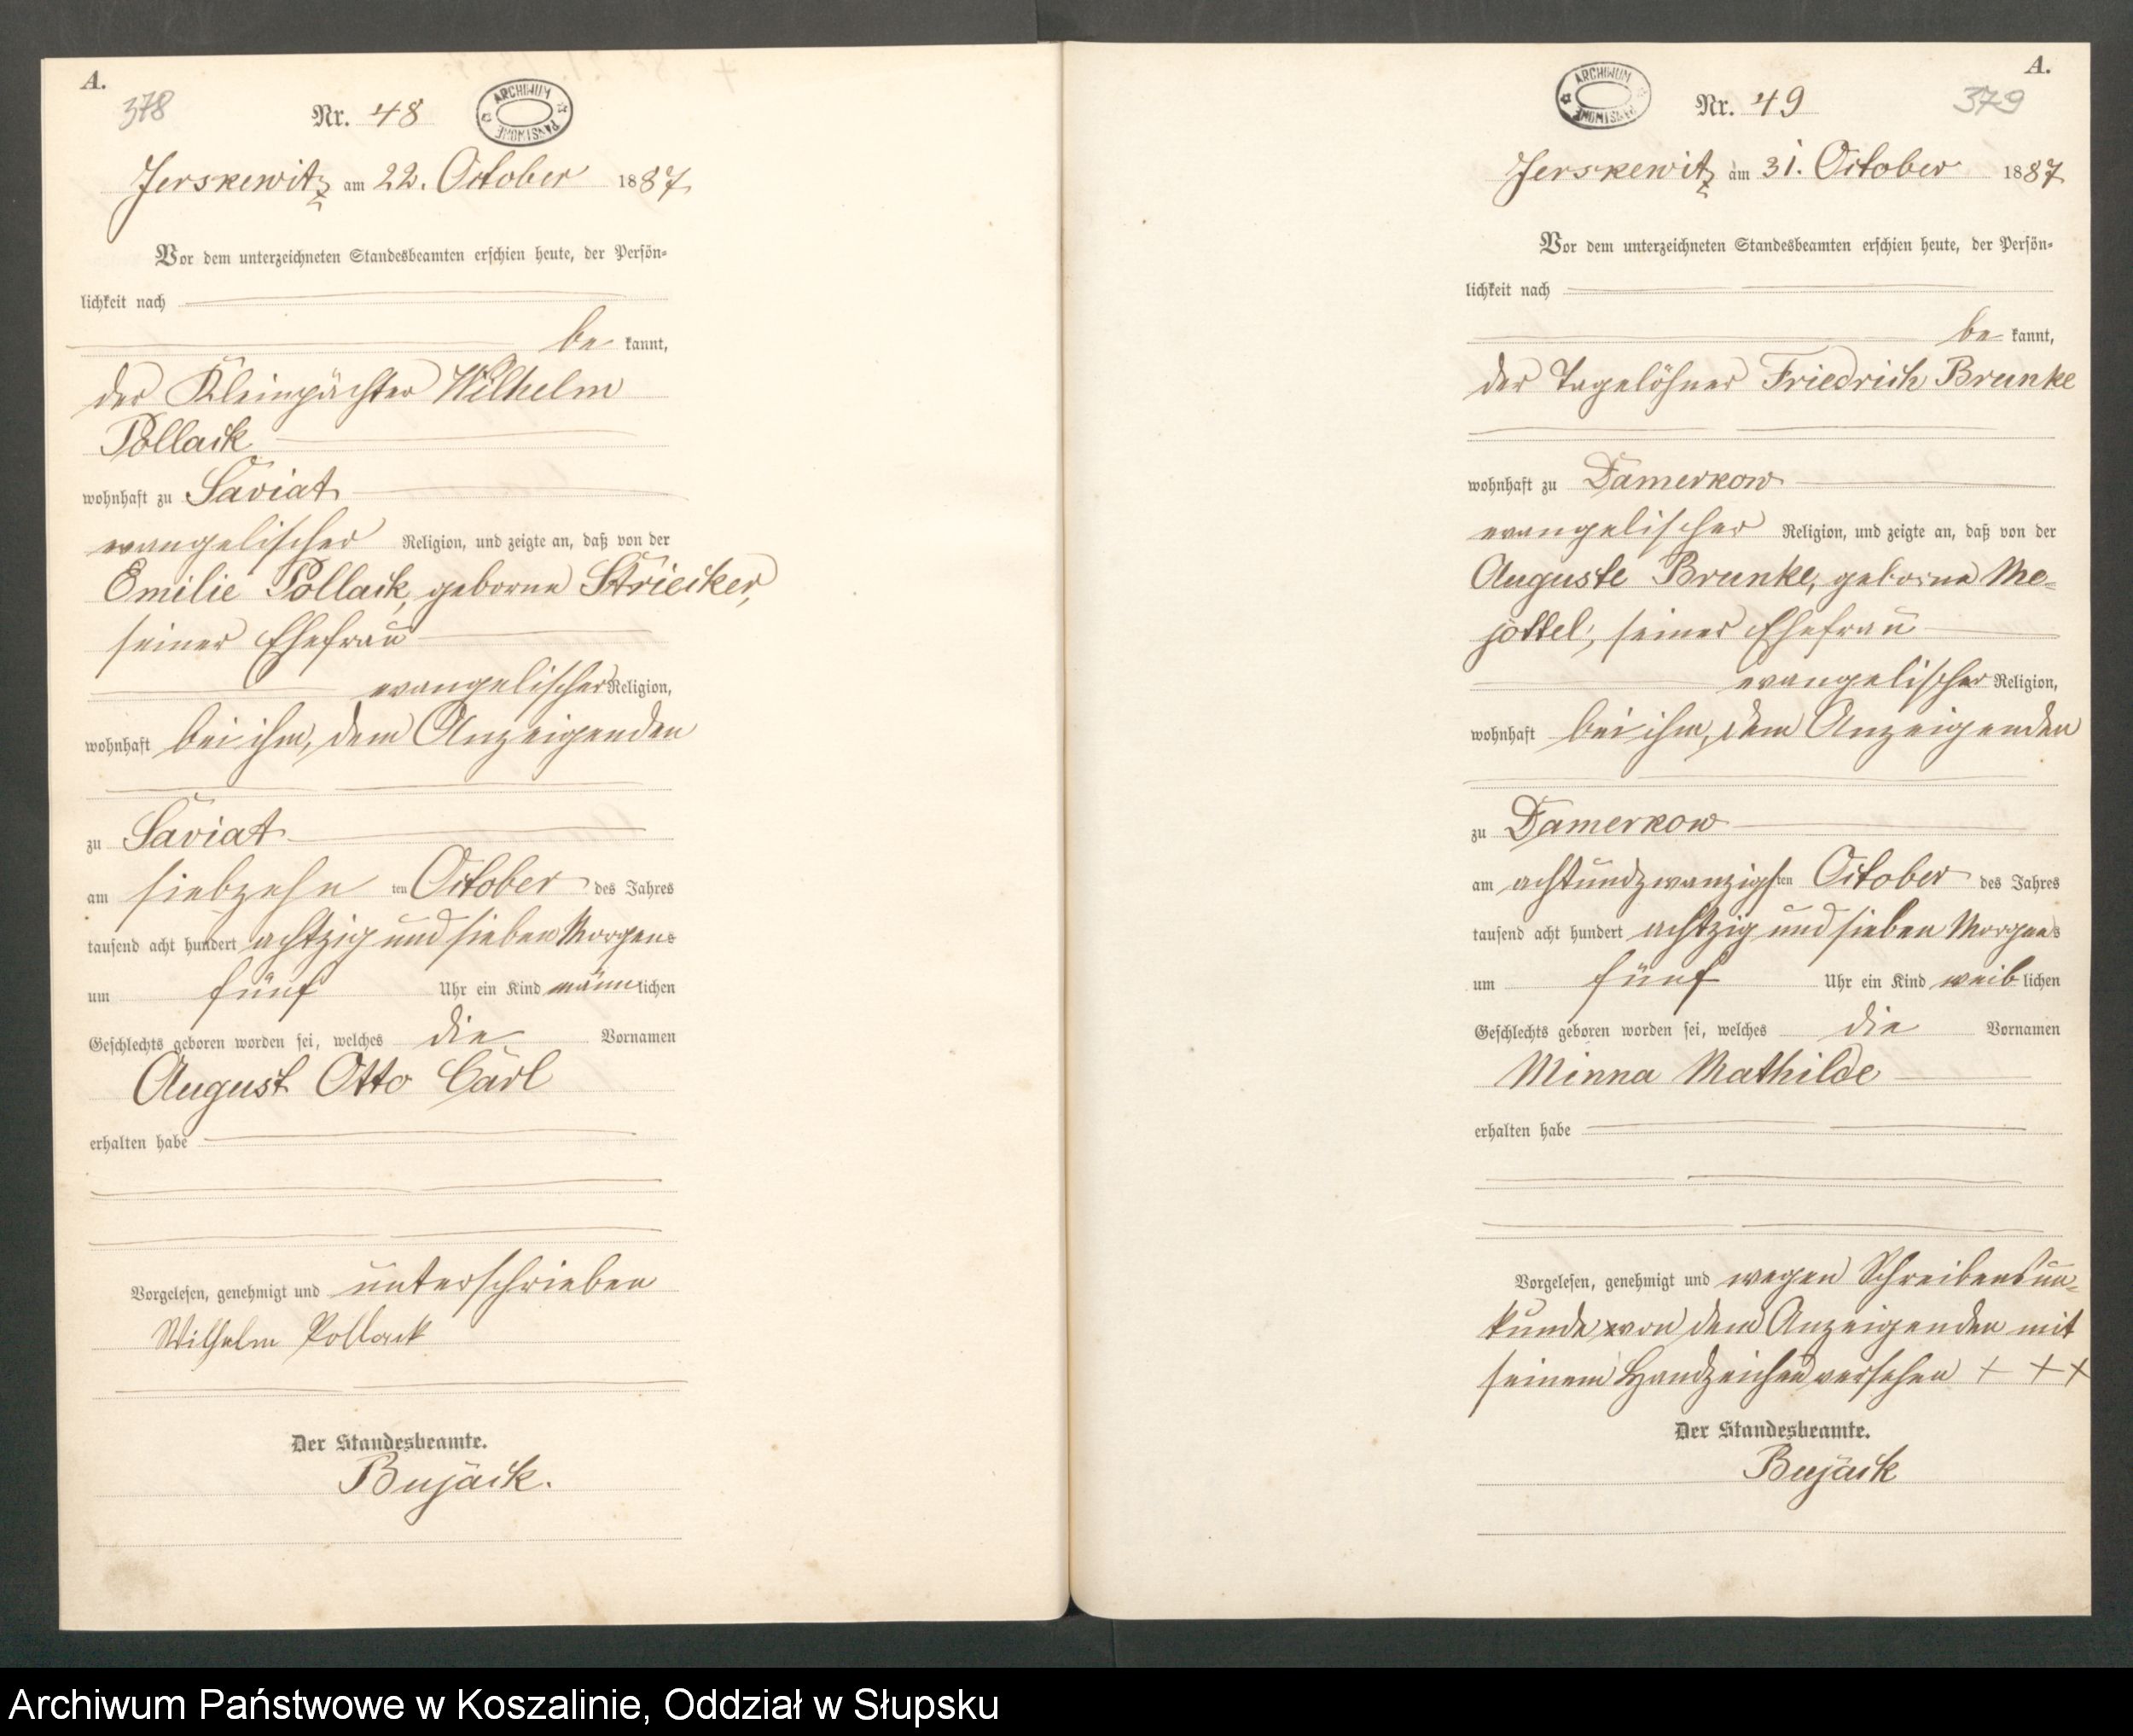 A.
378
Nr. 48
ARCHIWUM PAŃSTWOWE
Jerskewitz am 22. October 1887
Vor dem unterzeichneten Standesbeamten erschien heute, der Persön-
lichkeit nach
be kannt,
der Kleinpächter Wilhelm
Pollack
wohnhaft zu Saviat
evangelischer Religion, und zeigte an, daß von der
Emilie Pollack, geborne Striecker,
seiner Ehefrau
evangelischer Religion,
wohnhaft bei ihm, dem Anzeigenden
zu Saviat
am siebzehn ten October des Jahres
tausend acht hundert achtzig und sieben Morgens
um fünf Uhr ein Kind männlichen
Geschlechts geboren worden sei, welches die Vornamen
August Otto Carl
erhalten habe
Vorgelesen, genehmigt und unterschrieben
Wilhelm Pollack
Der Standesbeamte.
Bujack.
A.
ARCHIWUM PAŃSTWOWE
Nr. 49
379
Jerskewitz am 31. October 1887
Vor dem unterzeichneten Standesbeamten erschien heute, der Persön-
lichkeit nach
be kannt,
der Tagelöhner Friedrich Brunke
wohnhaft zu Damerkow
evangelischer Religion, und zeigte an, daß von der
Auguste Brunke, geborne Me-
jottel, seiner Ehefrau
evangelischer Religion,
wohnhaft bei ihm, dem Anzeigenden
zu Damerkow
am achtundzwanzigsten October des Jahres
tausend acht hundert achtzig und sieben Morgens
um fünf Uhr ein Kind weib lichen
Geschlechts geboren worden sei, welches die Vornamen
Minna Mathilde
erhalten habe
Vorgelesen, genehmigt und wegen Schreibensun-
kunde von dem Anzeigenden mit
seinem Handzeichen versehen + + +
Der Standesbeamte.
Bujack
Archiwum Państwowe w Koszalinie, Oddział w Słupsku